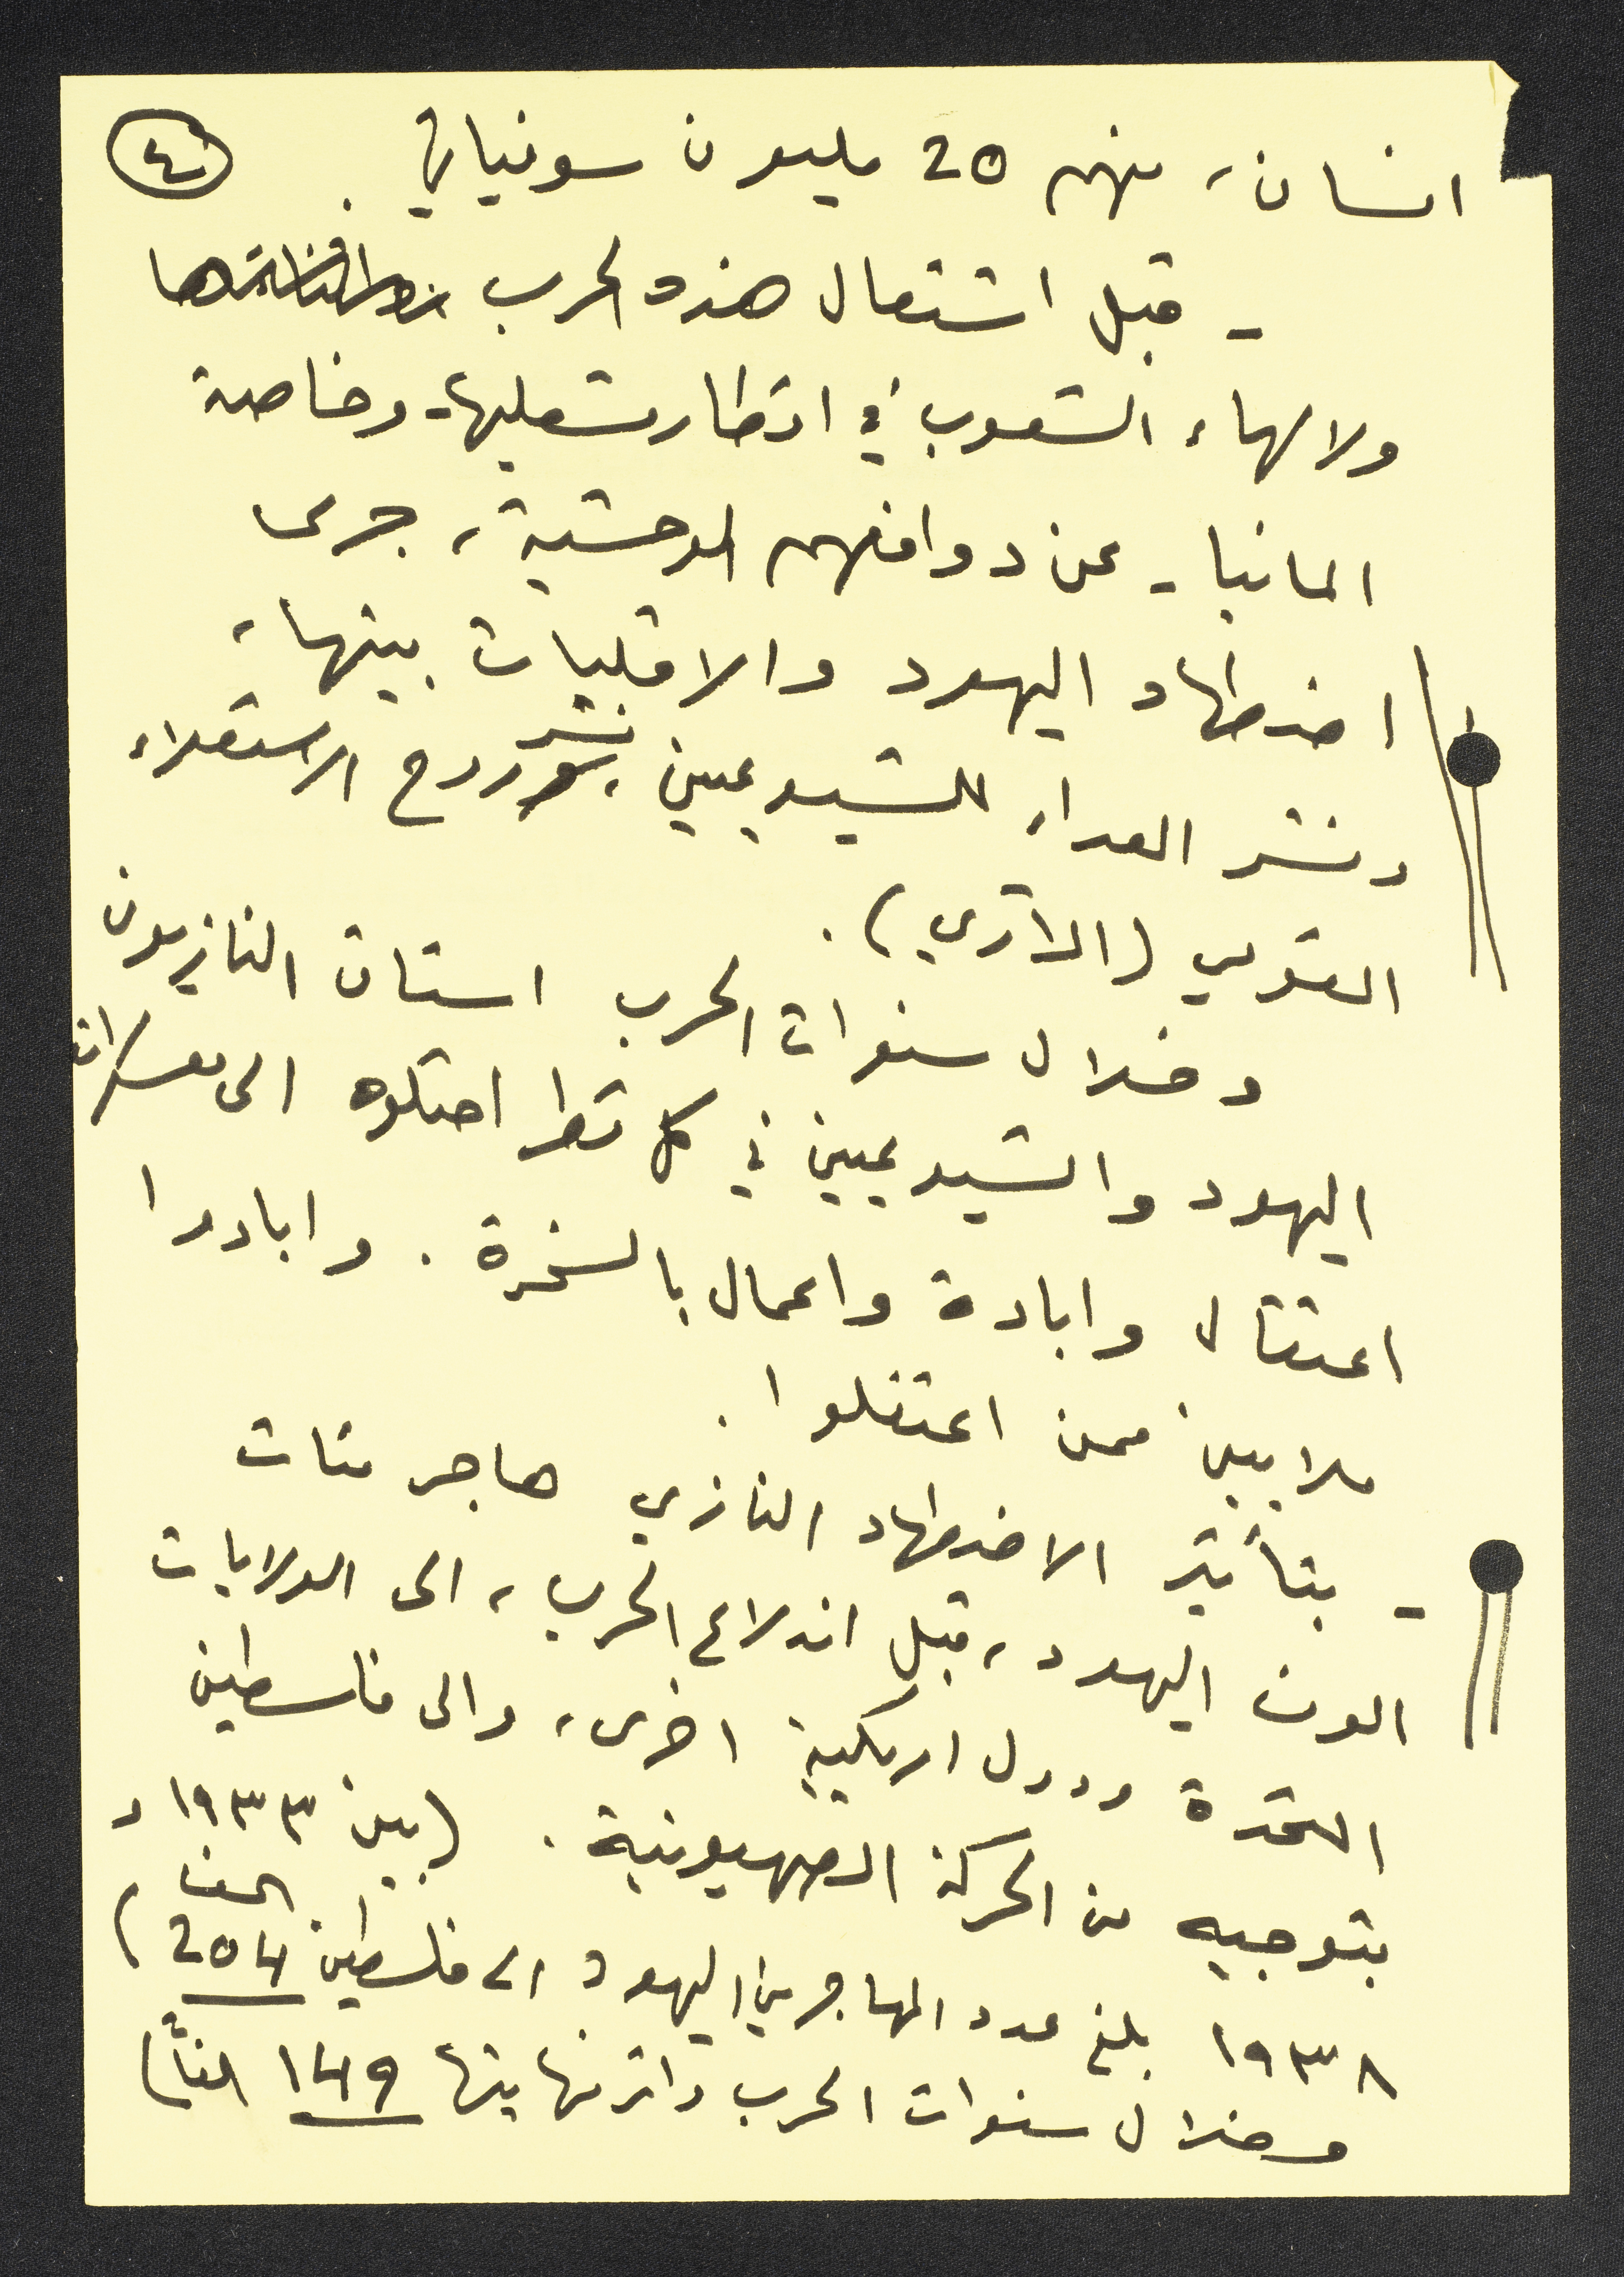 ٤
انسان، منهم 20 مليون سوفياتي.
- قبل اشتعال هذه الحرب
ولالهاء الشعوب في اقطار مشعليها - وخاصة
المانيا - عن دوافعهم الوحشية، جرى
اضطهاد اليهود والاقليات بينها،
ونشر العداء للشيوعيين، نشر روح الاستعلاء
القومي (الآري).
وخلال سنوات الحرب استاق النازيون
اليهود والشيوعيين في كل قطر احتلوه الى معسكرات
اعتقال وابادة واعمال بالسخرة. وابادوا
ملايين ممن اعتقلوا.
- بتأثير الاضطهاد النازي هاجر مئات
الوف اليهود، قبل اندلاع الحرب، الى الولايات
المتحدة ودول اميركية اخرى، والى فلسطين
بتوجيه من الحركة الصهيونية. (بين ١٩٣٣ و
١٩٣٨ بلغ عدد المهاجرين اليهود الى فلسطين 254 الف)
وخلال سنوات الحرب واثر نهايتها 149 الفاً)